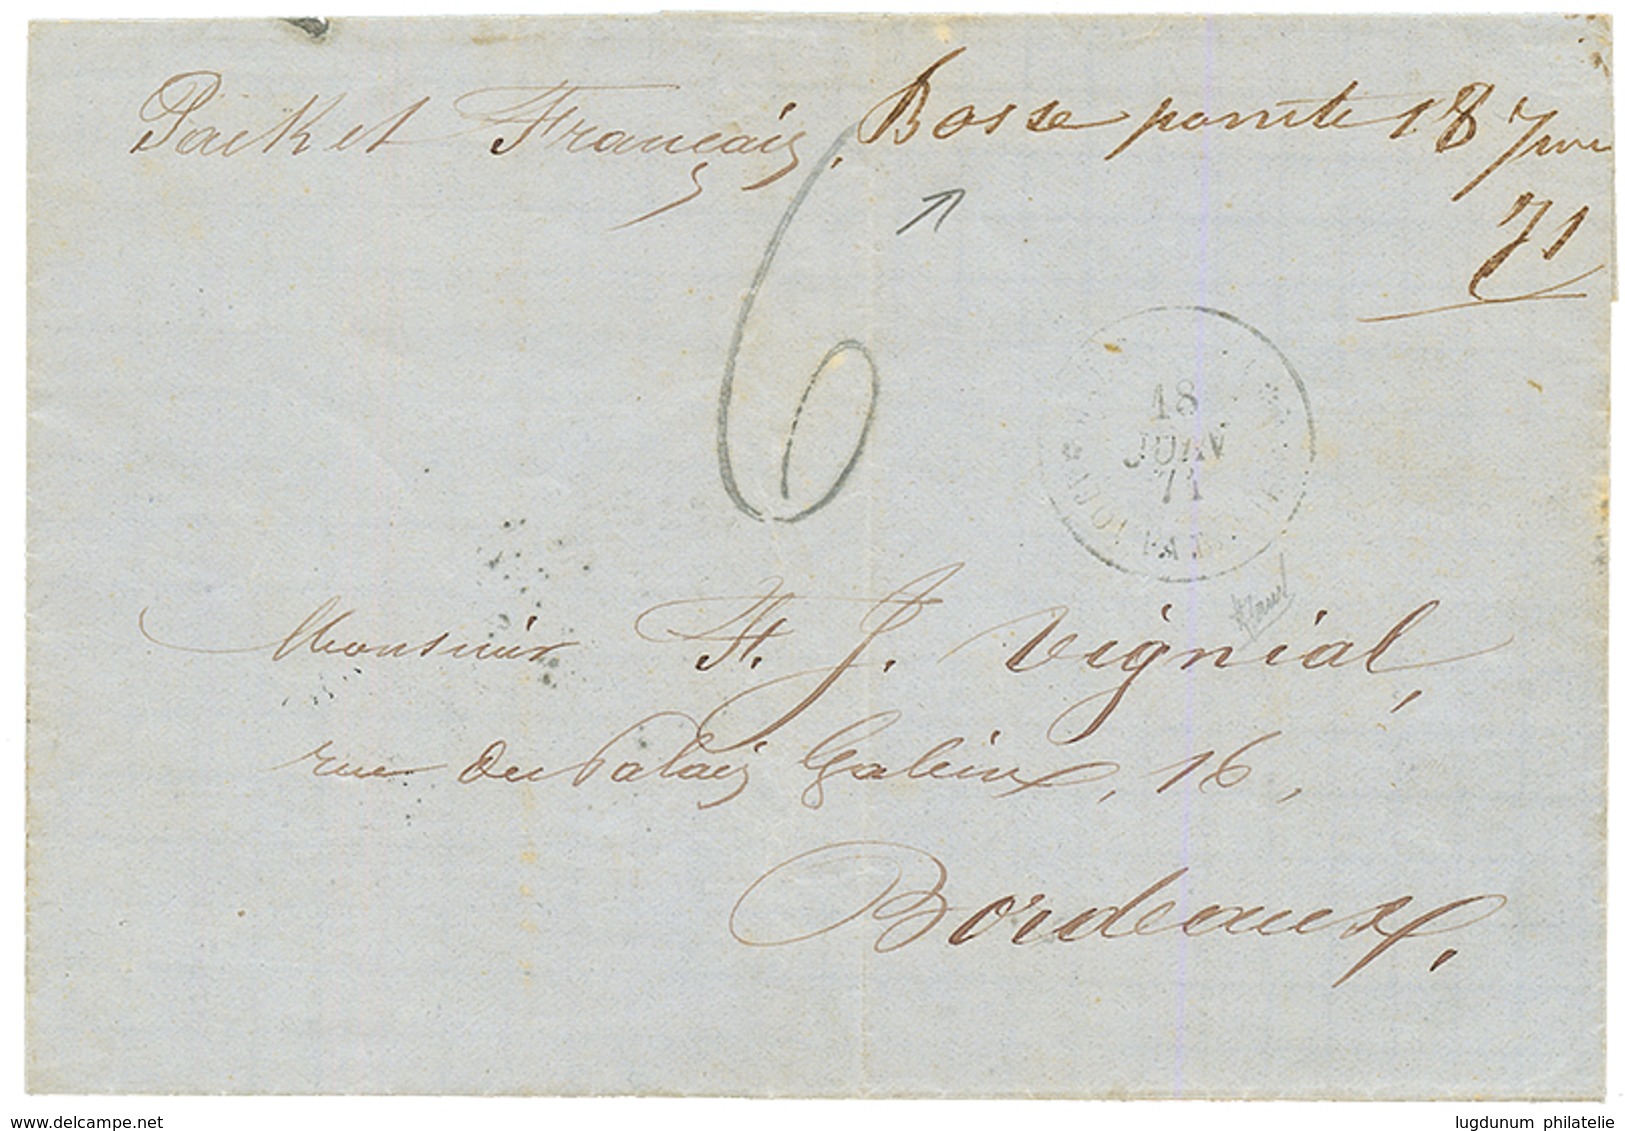 Packet Français, Basse pointe 18 Juin
71
6
18
JUIN
71
Monsieur H. J. Vignial,
rue du Palais Galien, 16,
Bordeaux.
delcampe.net
lugdunum philatelie